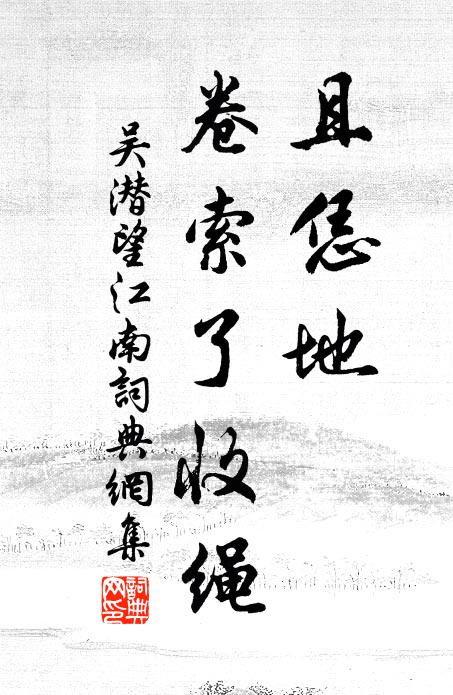 且恁地
卷索了收绳
吴潜望江南詞典網集
詞典网印